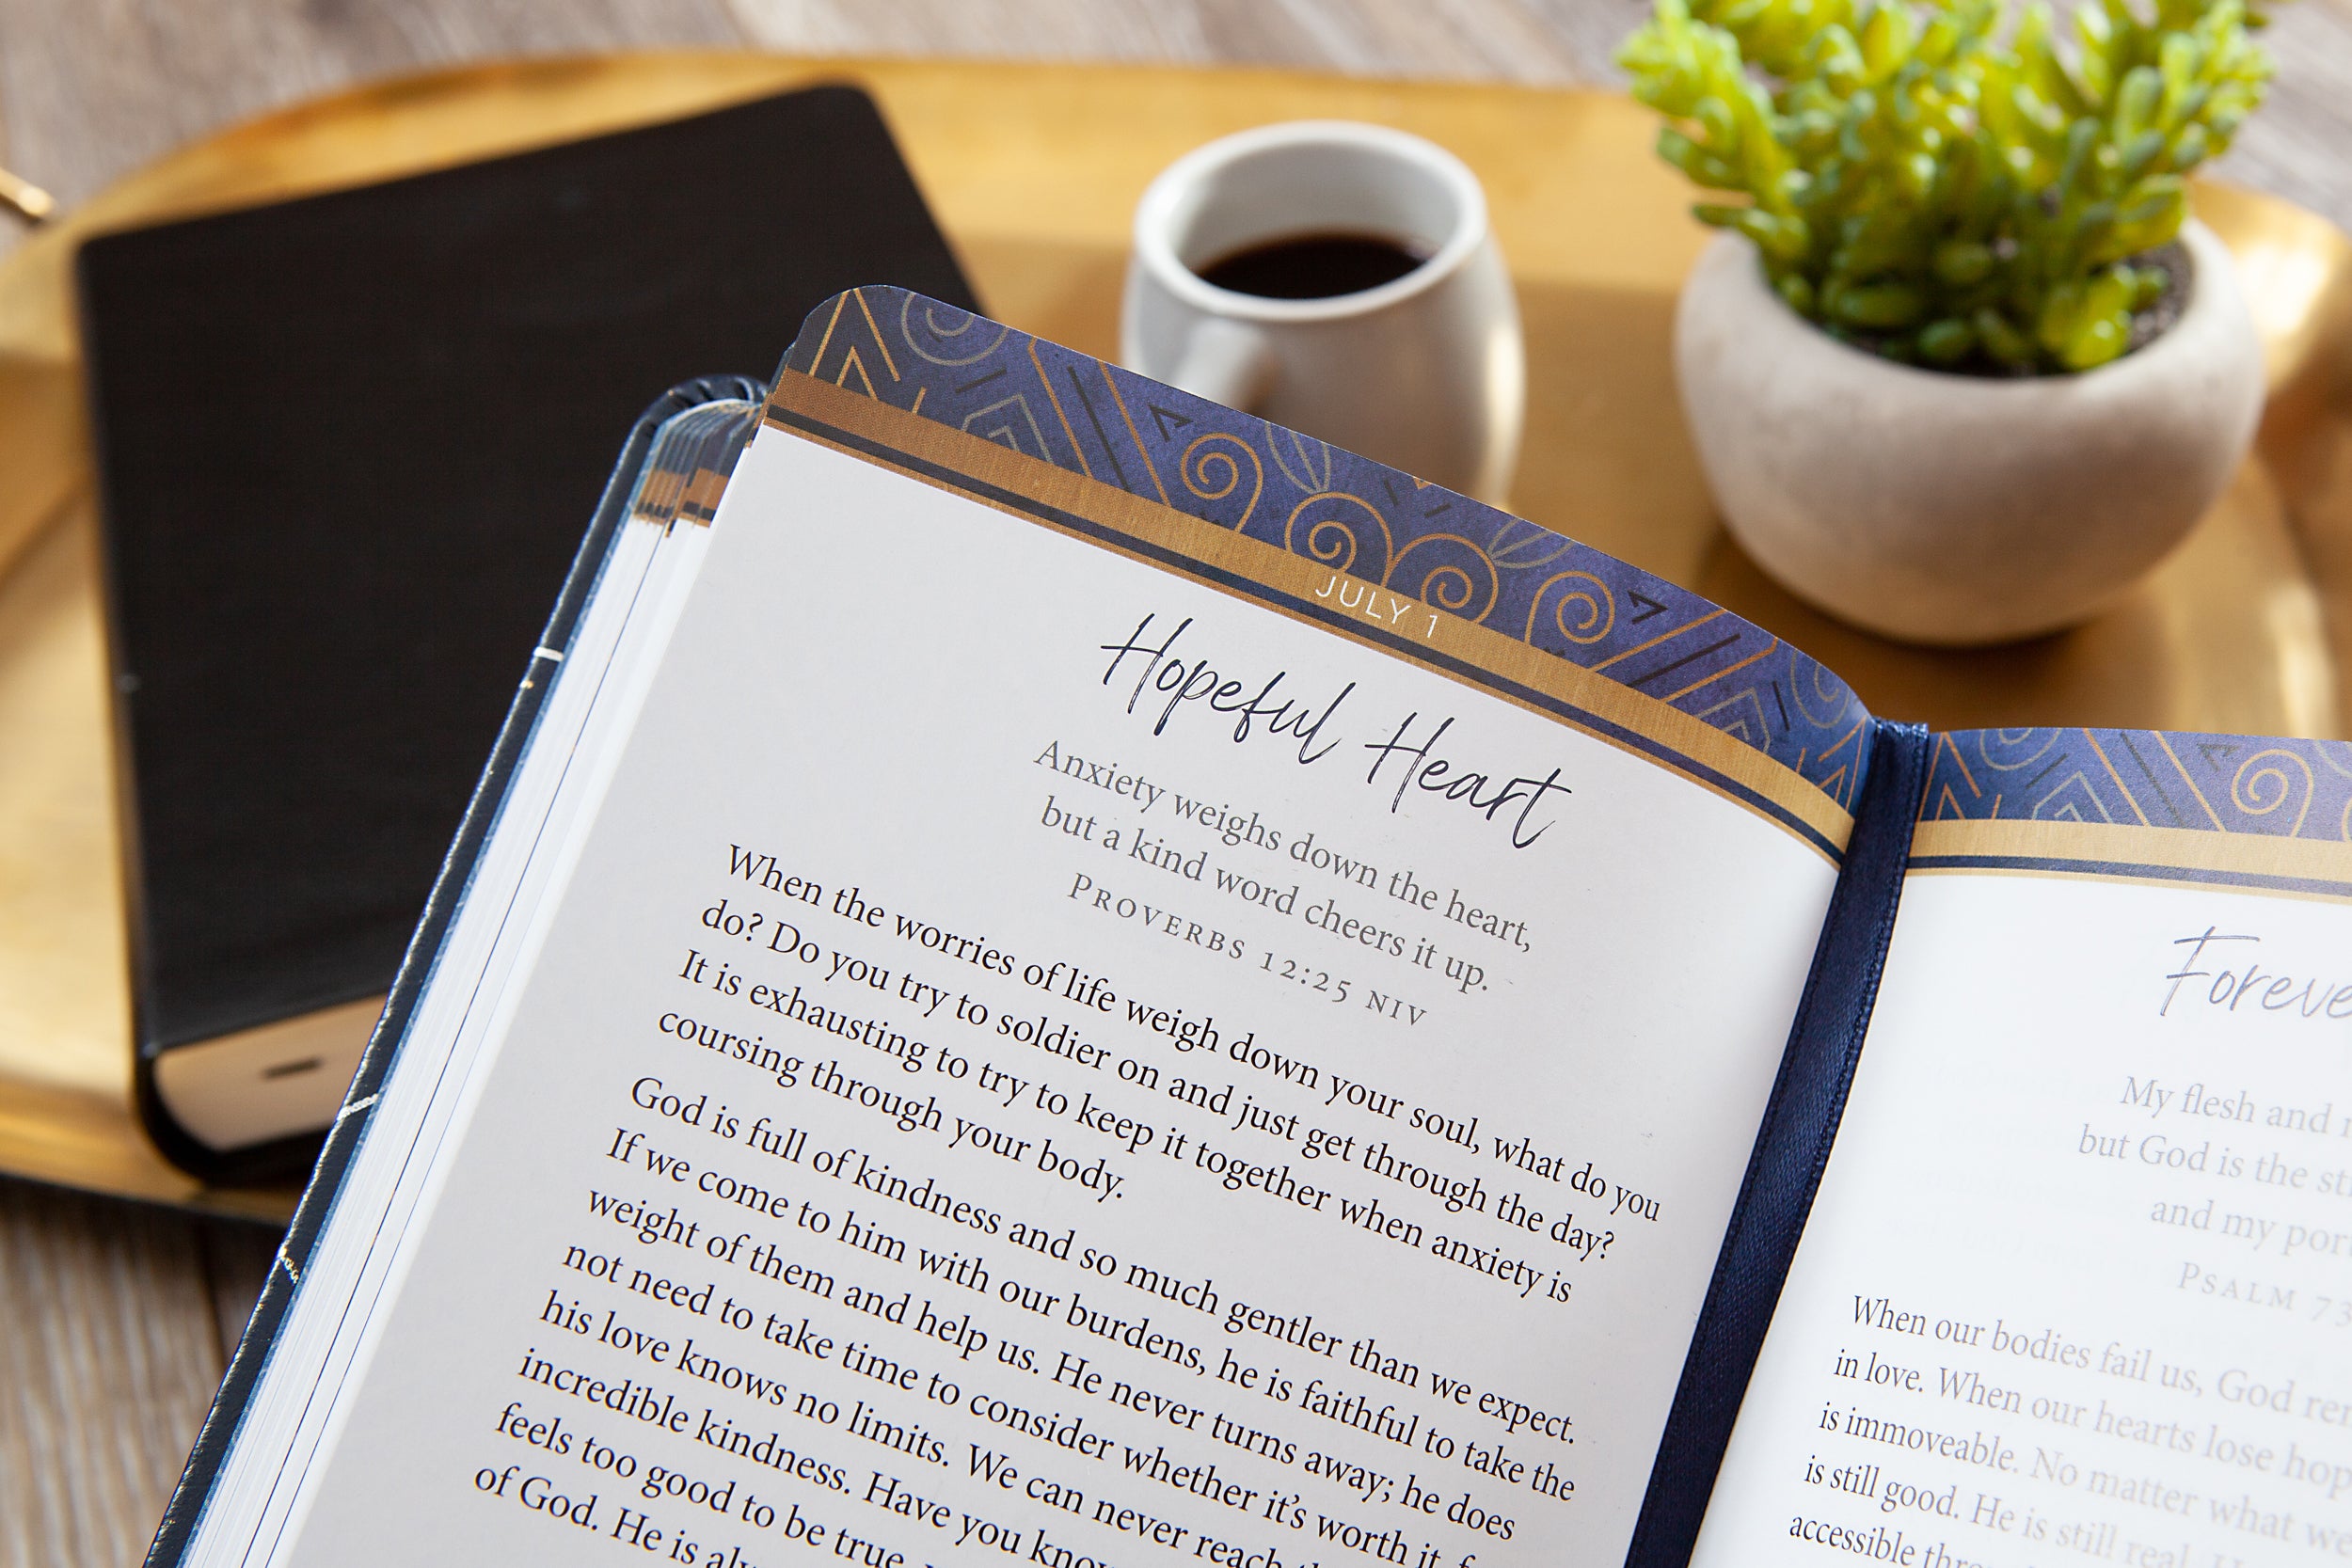 JULY 1
Hopeful Heart
Anxiety weighs down the heart,
but a kind word cheers it up.
PROVERBS 12:25 NIV
When the worries of life weigh down your soul, what do you
do? Do you try to soldier on and just get through the day?
It is exhausting to try to keep it together when anxiety is
coursing through your body.
God is full of kindness and so much gentler than we expect.
If we come to him with our burdens, he is faithful to take the
weight of them and help us. He never turns away; he does
not need to take time to consider whether it's worth it, f
his love knows no limits. We can never reach th
incredible kindness. Have you know
feels too good to be true.
of God. He is alw
Foreve
My flesh and
but God is the st
and my por
PSALM 73
When our bodies fail us, God re
in love. When our hearts lose hop
is immoveable. No matter what w
is still good. He is still real.
accessible thro